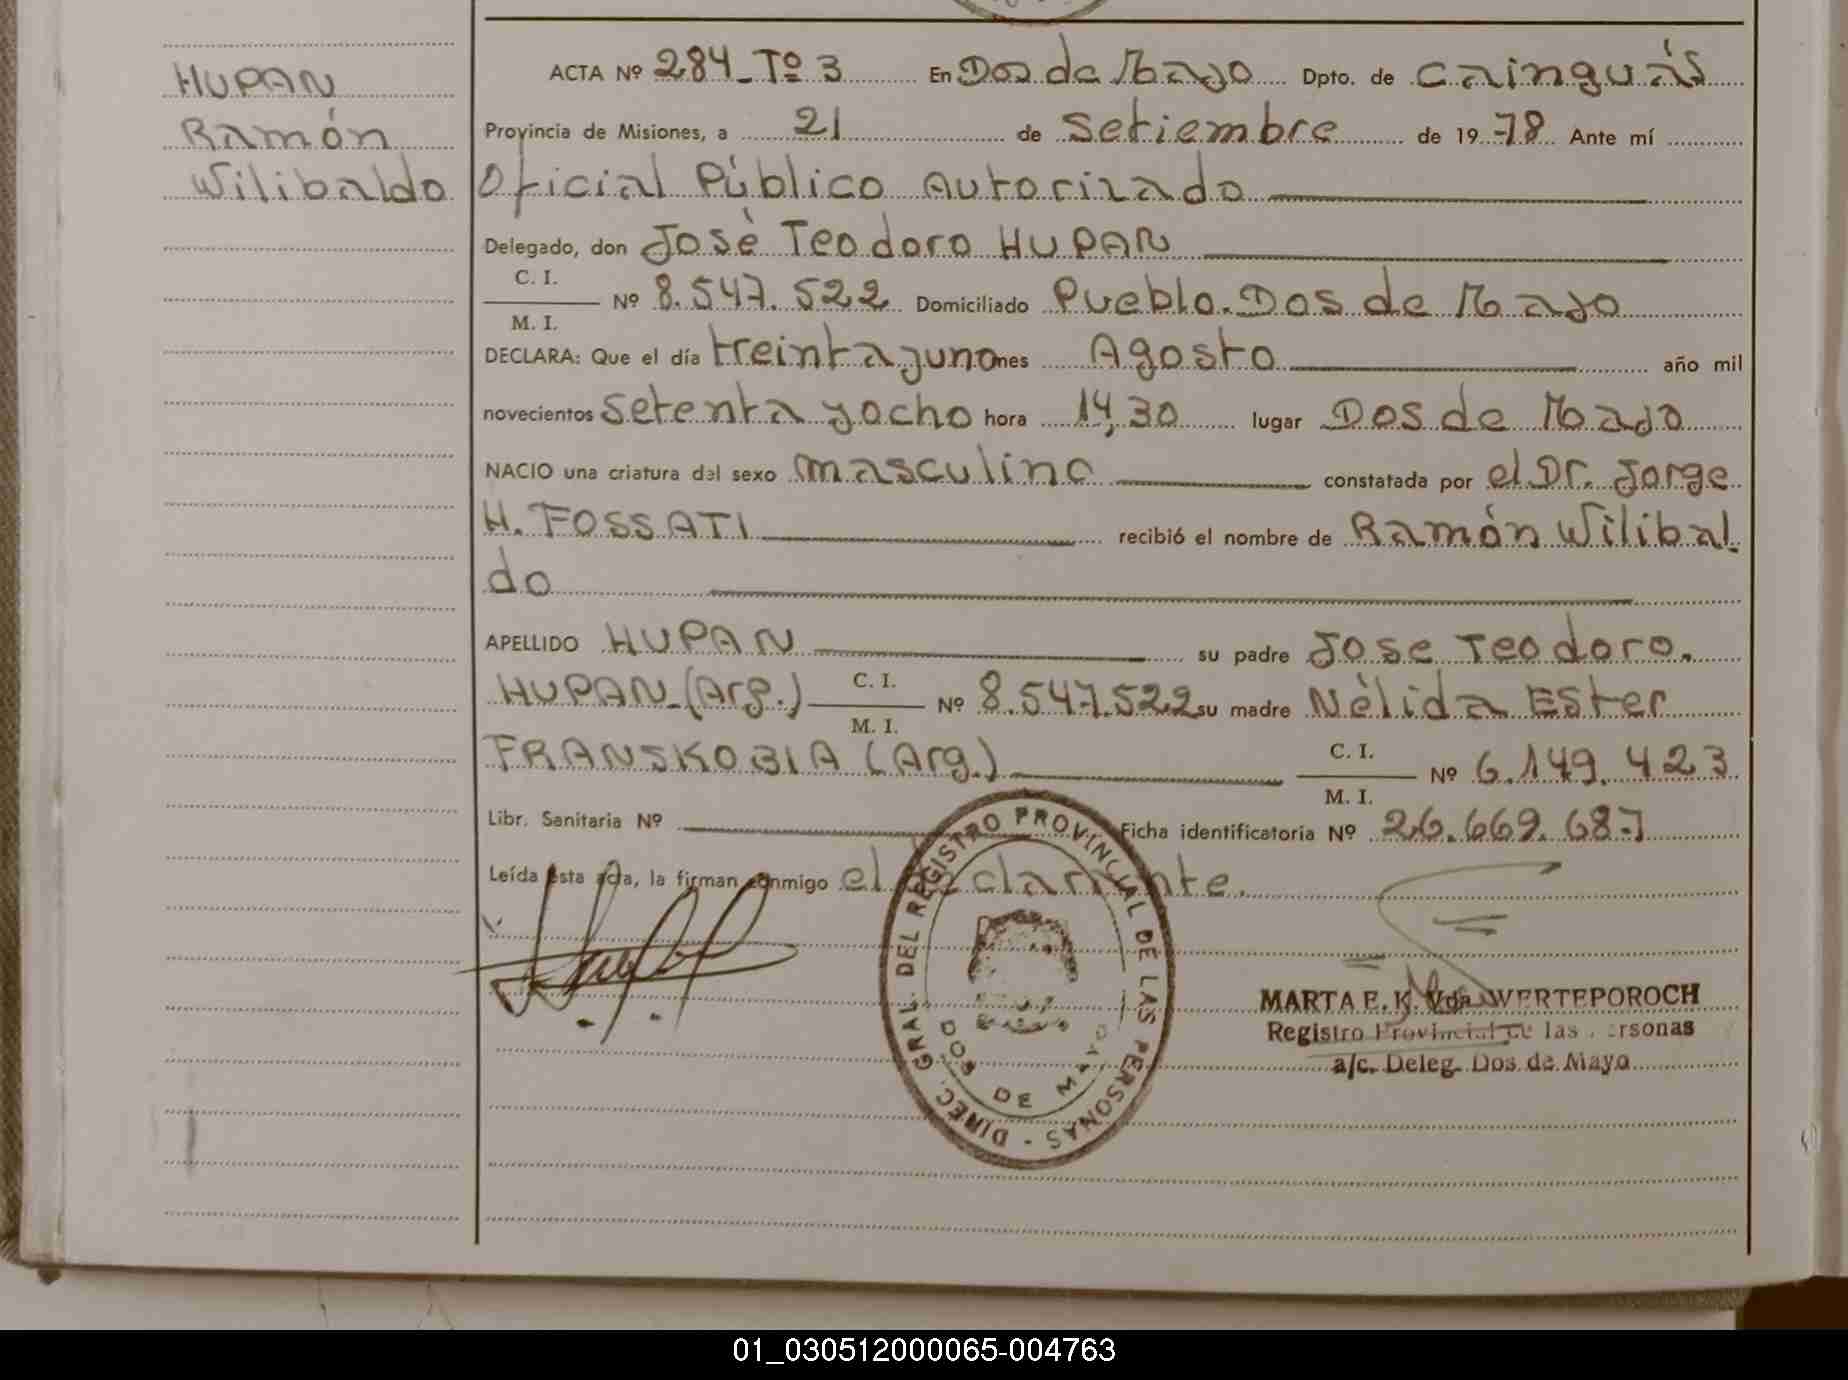 HUPAN
Ramón
Wilibaldo
ACTA Nº 284_Tº 3 En Dos de Mayo Dpto. de Cainguás
Provincia de Misiones, a 21 de Setiembre de 1978 Ante mí
Oficial Público Autorizado
Delegado, don José Teodoro HUPAN
C. I.
M. I.
Nº 8.547.522 Domiciliado Pueblo. Dos de Mayo
DECLARA: Que el día treintayuno mes Agosto año mil
novecientos setenta yocho hora 14,30 lugar Dos de Mayo
NACIO una criatura del sexo masculino constatada por el Dr. Jorge
H. FOSSATI recibió el nombre de Ramón Wilibal
do
APELLIDO HUPAN su padre Jose Teodoro.
HUPAN_(Arg.) C. I. M. I. Nº 8.547.522 su madre Nélida Ester
FRANSKOBIA (Arg.) C. I. M. I. Nº 6.149.423
Libr. Sanitaria Nº Ficha identificatoria Nº 26.669.687
Leída esta acta, la firman conmigo el declarante.
DIREC. GRAL. DEL REGISTRO PROVINCIAL DE LAS PERSONAS -
DOS DE MAYO
MARTA E. K. Vda. WERTEPOROCH
Registro Provincial de las Personas
a/c. Deleg. Dos de Mayo
01_030512000065-004763